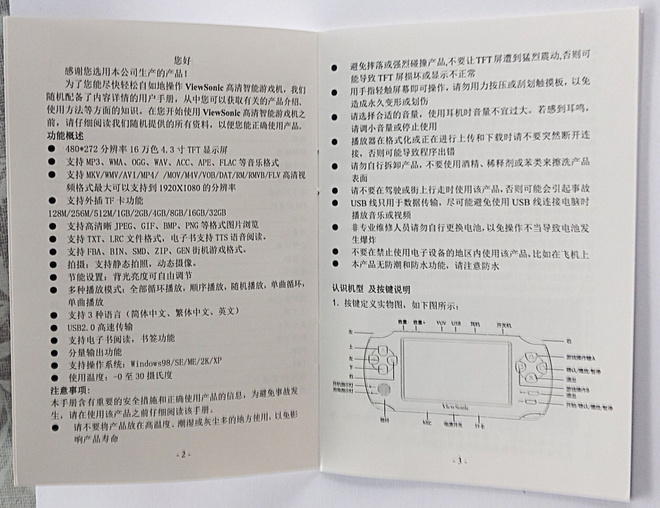 您好
感谢您选用本公司生产的产品！
为了您能尽快轻松自如地操作 ViewSonic 高清智能游戏机，我们
随机配备了内容详情的用户手册，从中您可以获取有关的产品介绍、
使用方法等方面的知识。在您开始使用 ViewSonic 高清智能游戏机之
前，请仔细阅读我们随机提供的所有资料，以便您能正确使用产品。
功能概述
● 480*272 分辨率 16 万色 4.3 寸 TFT 显示屏
● 支持 MP3、WMA、OGG、WAV、ACC、APE、FLAC 等音乐格式
● 支持 MKV/WMV/AVI/MP4/ /MOV/M4V/VOB/DAT/RM/RMVB/FLV 高清视
频格式最大可以支持到 1920X1080 的分辨率
● 支持外插 TF 卡功能
128M/256M/512M/1GB/2GB/4GB/8GB/16GB/32GB
● 支持高清晰 JPEG、GIF、BMP、PNG 等格式图片浏览
● 支持 TXT、LRC 文件格式，电子书支持 TTS 语音阅读。
● 支持 FBA、BIN、SMD、ZIP、GEN 街机游戏格式。
● 拍摄：支持静态拍照，动态摄像。
● 节能设置：背光亮度可自由调节
● 多种播放模式：全部循环播放，顺序播放，随机播放，单曲循环，
单曲播放
● 支持 3 种语言（简体中文、繁体中文、英文）
● USB2.0 高速传输
● 支持电子书阅读，书签功能
● 分量输出功能
● 支持操作系统：Windows98/SE/ME/2K/XP
● 使用温度：-0 至 30 摄氏度
注意事项：
本手册含有重要的安全措施和正确使用产品的信息，为避免事故发
生，请在使用该产品之前仔细阅读该手册。
● 请不要将产品放在高温度、潮湿或灰尘多的地方使用，以免影
响产品寿命
- 2 -
● 避免摔落或强烈碰撞产品，不要让 TFT 屏遭到猛烈震动，否则可
能导致 TFT 屏损坏或显示不正常
● 用手指轻触屏幕即可操作，请勿用力按压或刮划触摸板，以免
造成永久变形或划伤
● 请选择合适的音量，使用耳机时音量不宜过大。若感到耳鸣，
请调小音量或停止使用
● 播放器在格式化或正在进行上传和下载时请不要突然断开连
接，否则可能导致程序出错
● 请勿自行拆卸产品，不要使用酒精、稀释剂或苯类来擦洗产品
表面
● 请不要在驾驶或街上行走时使用该产品，否则可能会引起事故
● USB 线只用于数据传输，尽可能避免使用 USB 线连接电脑时
播放音乐或视频
● 非专业维修人员请勿自行更换电池，以免操作不当导致电池发
生爆炸
● 不要在禁止使用电子设备的地区内使用该产品，比如在飞机上
● 本产品无防潮和防水功能，请注意防水
认识机型 及按键说明
1. 按键定义实物图，如下图所示：
音量- 音量+ YUV USB 耳机 开关机
左
右
上
左
下
右
退出
ViewSonic
MIC
- 3 -